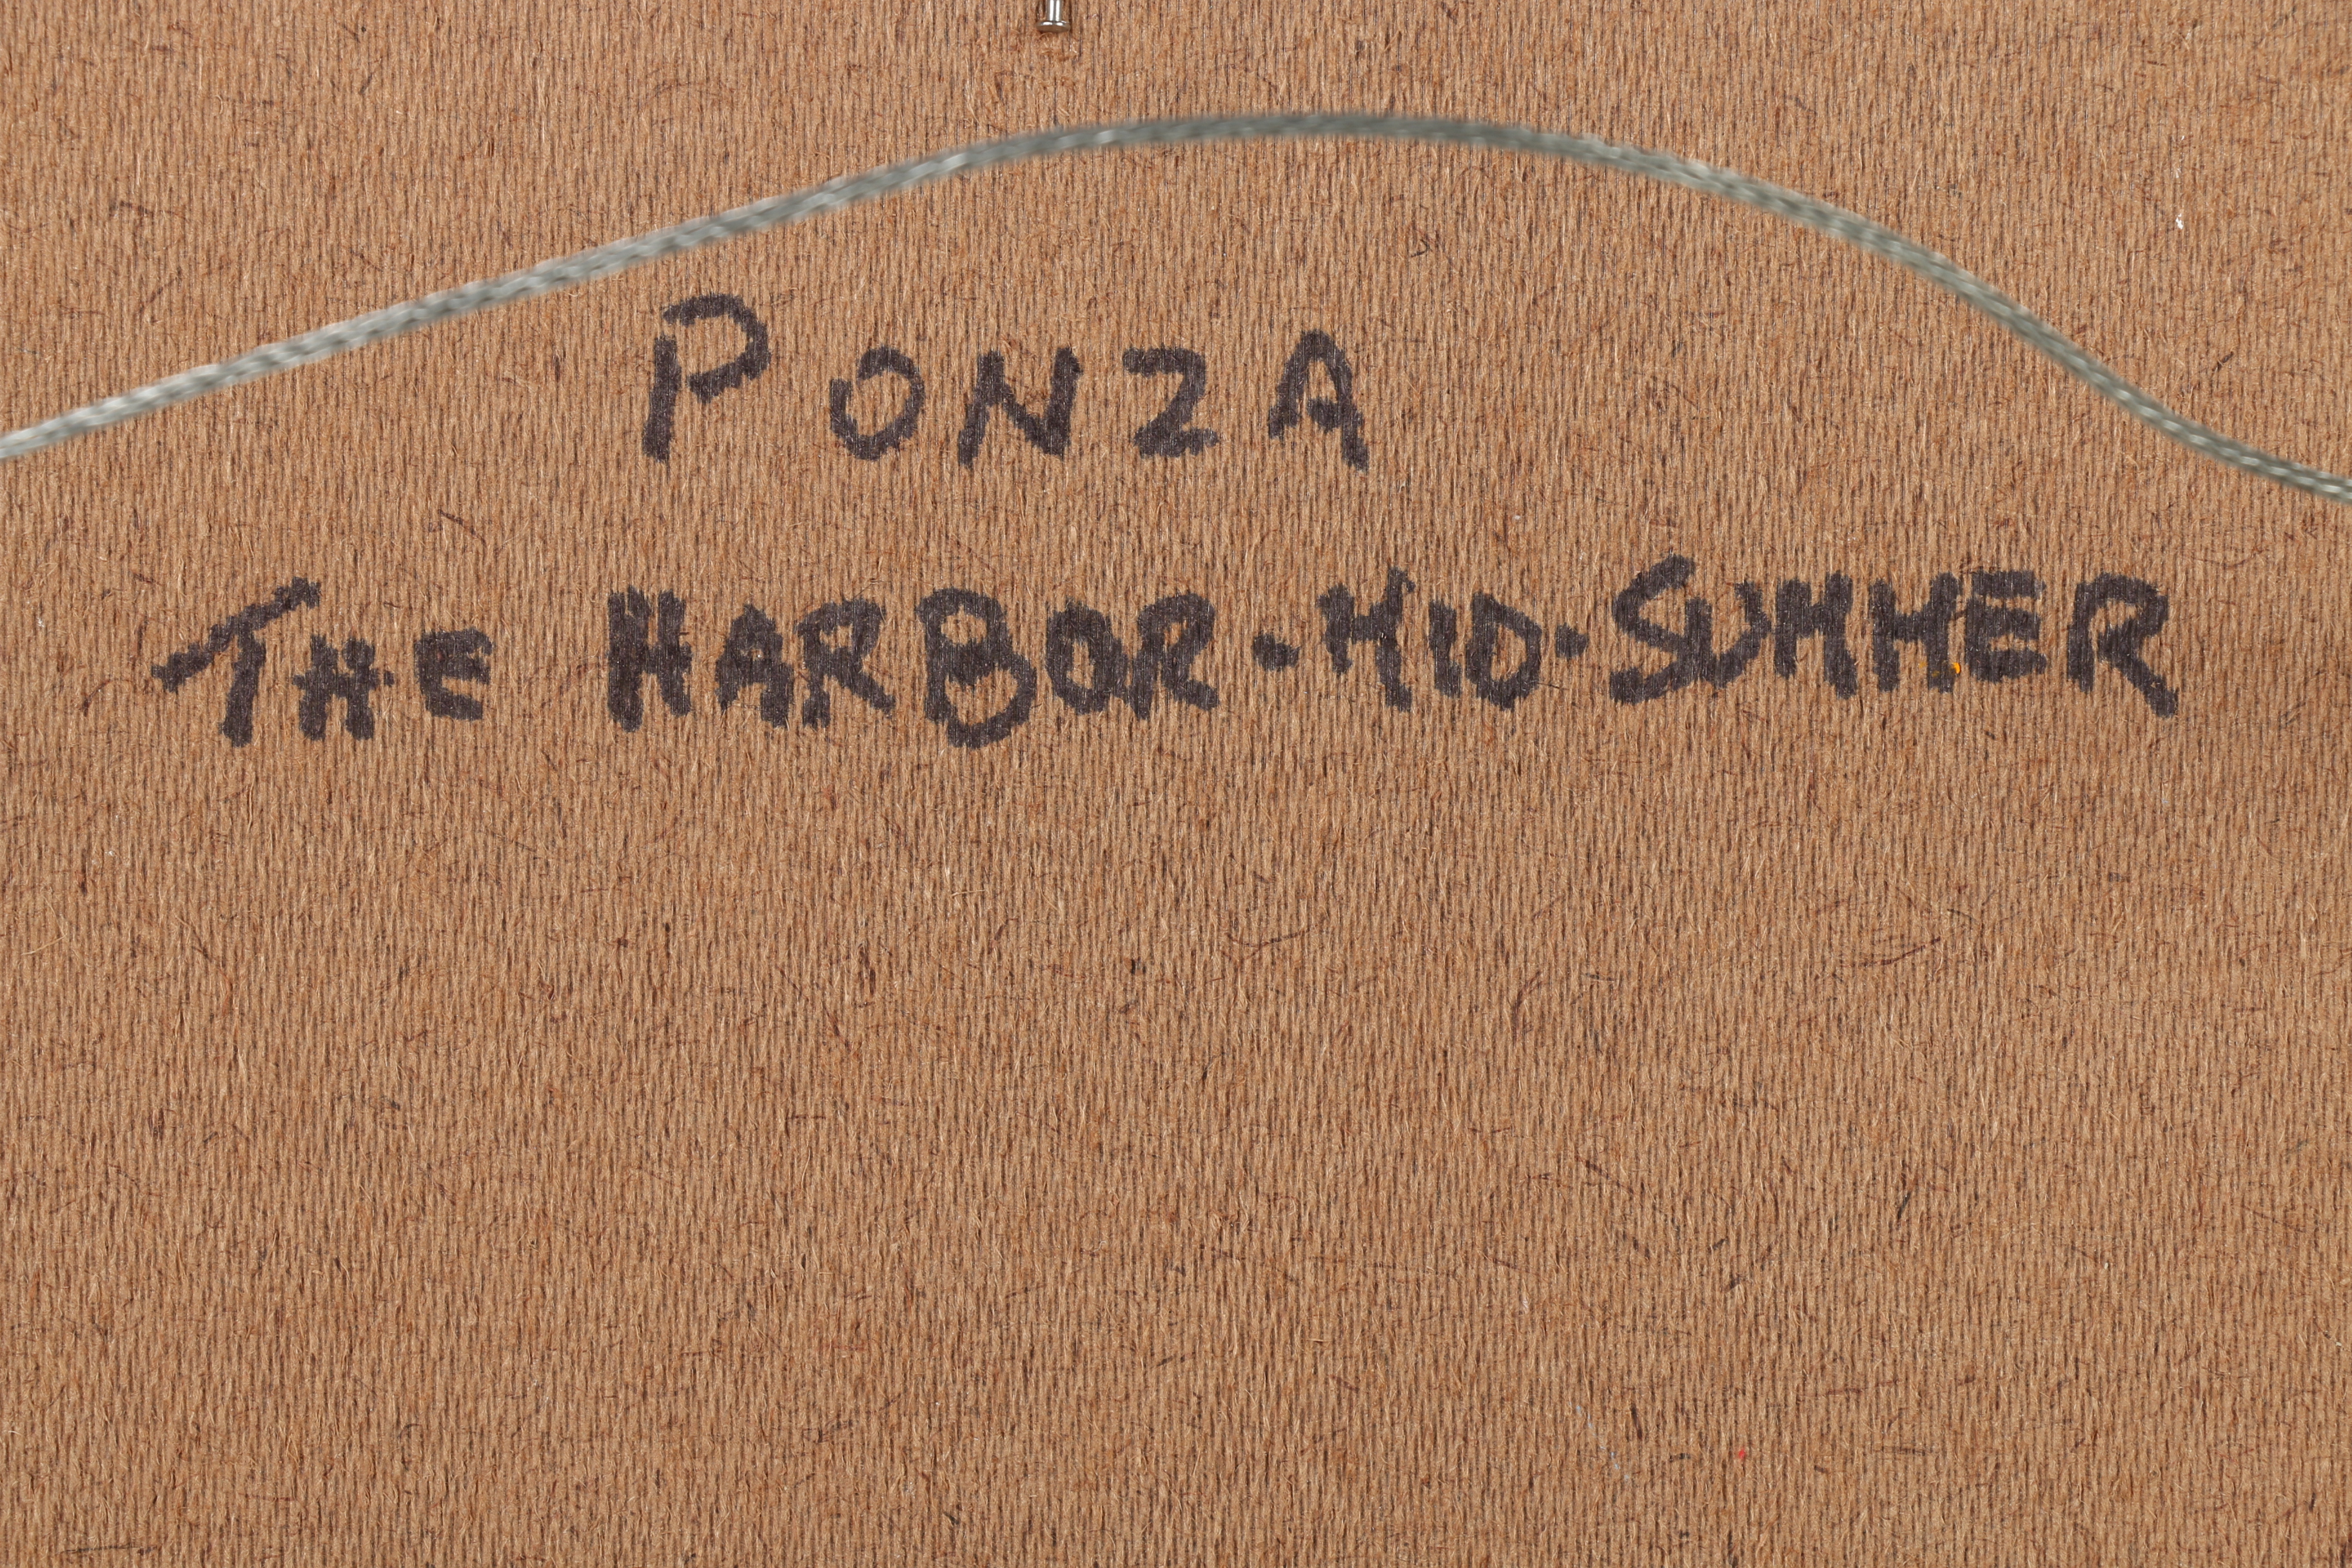 PONZA
THE HARBOR-MID-SUMMER